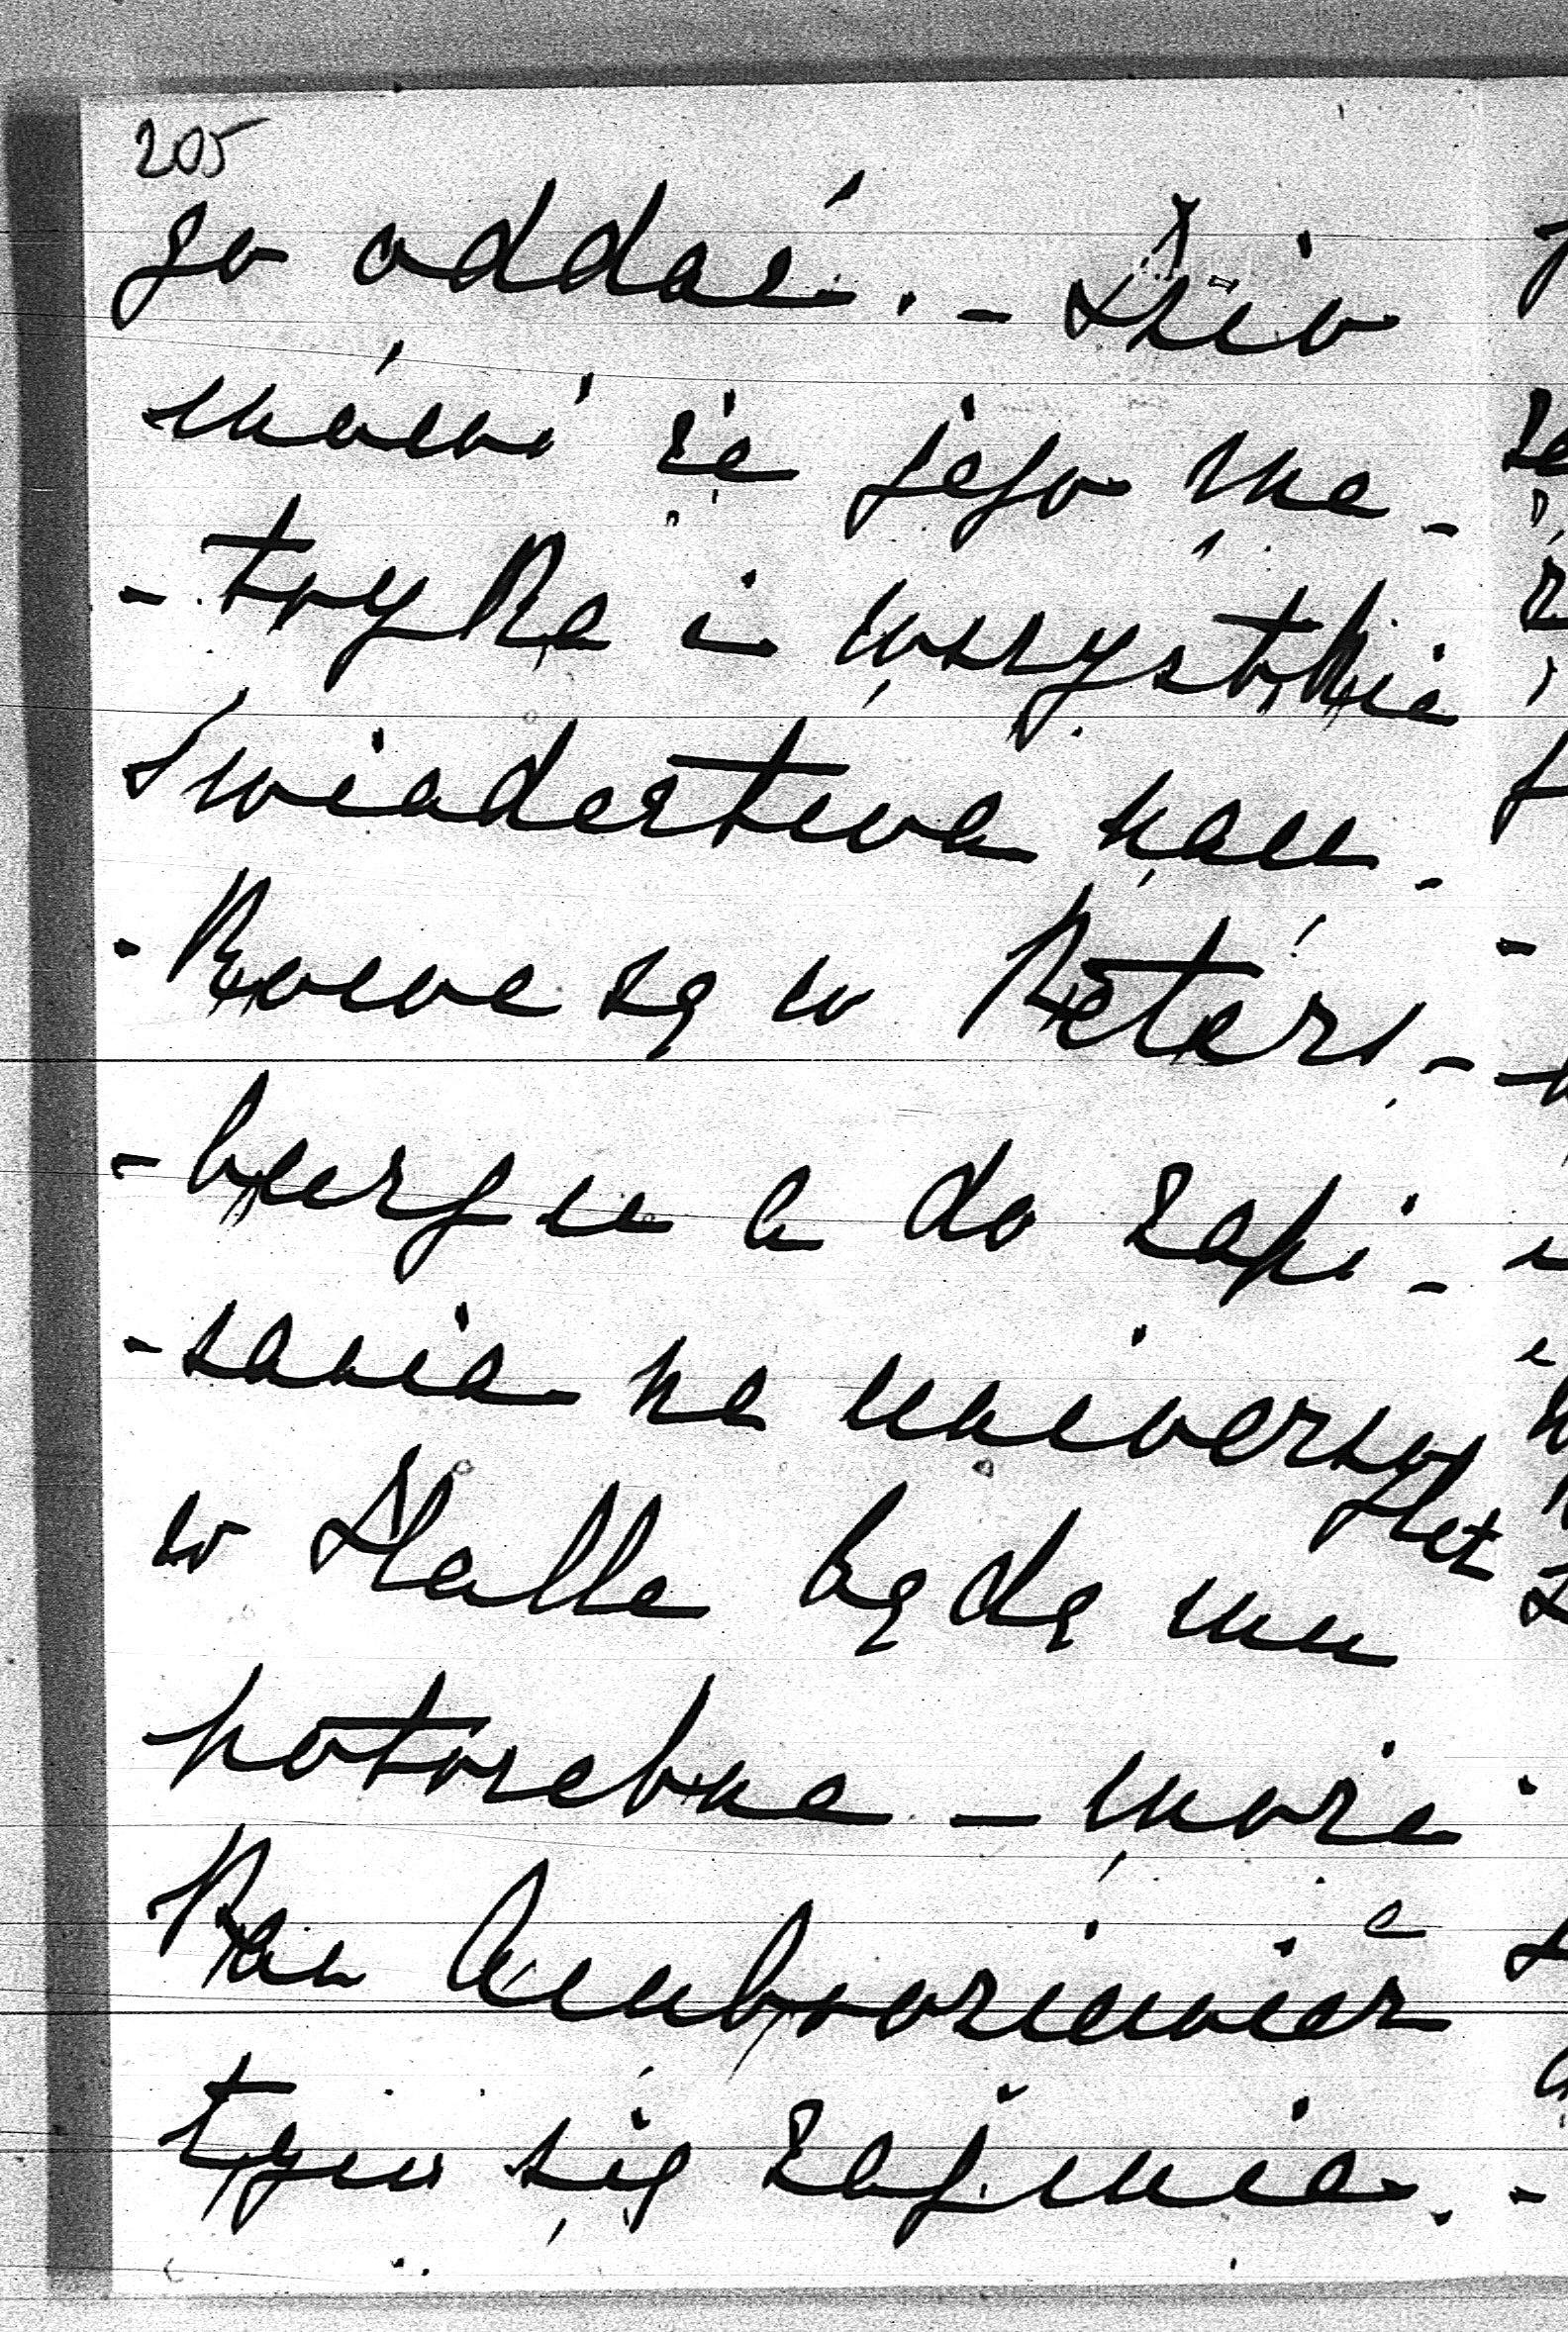 205
go oddać. - Dziś
mówi że jego me-
-tryka i wszystkie
świadectwa nau-
-kowe są w Peters-
-burgu a do zapi-
-sania na uniwersytet
w Halle będą mu
potrzebne - może
Pan Ambroziewicz
tym się zajmie. -